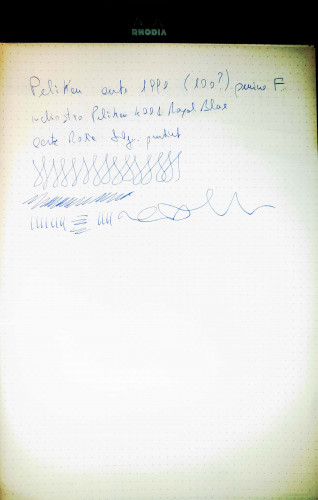 RHODIA
Pelikan ante 1990 (100?) pennino F
inchiostro Pelikan 4001 Royal Blue
carta Rodia